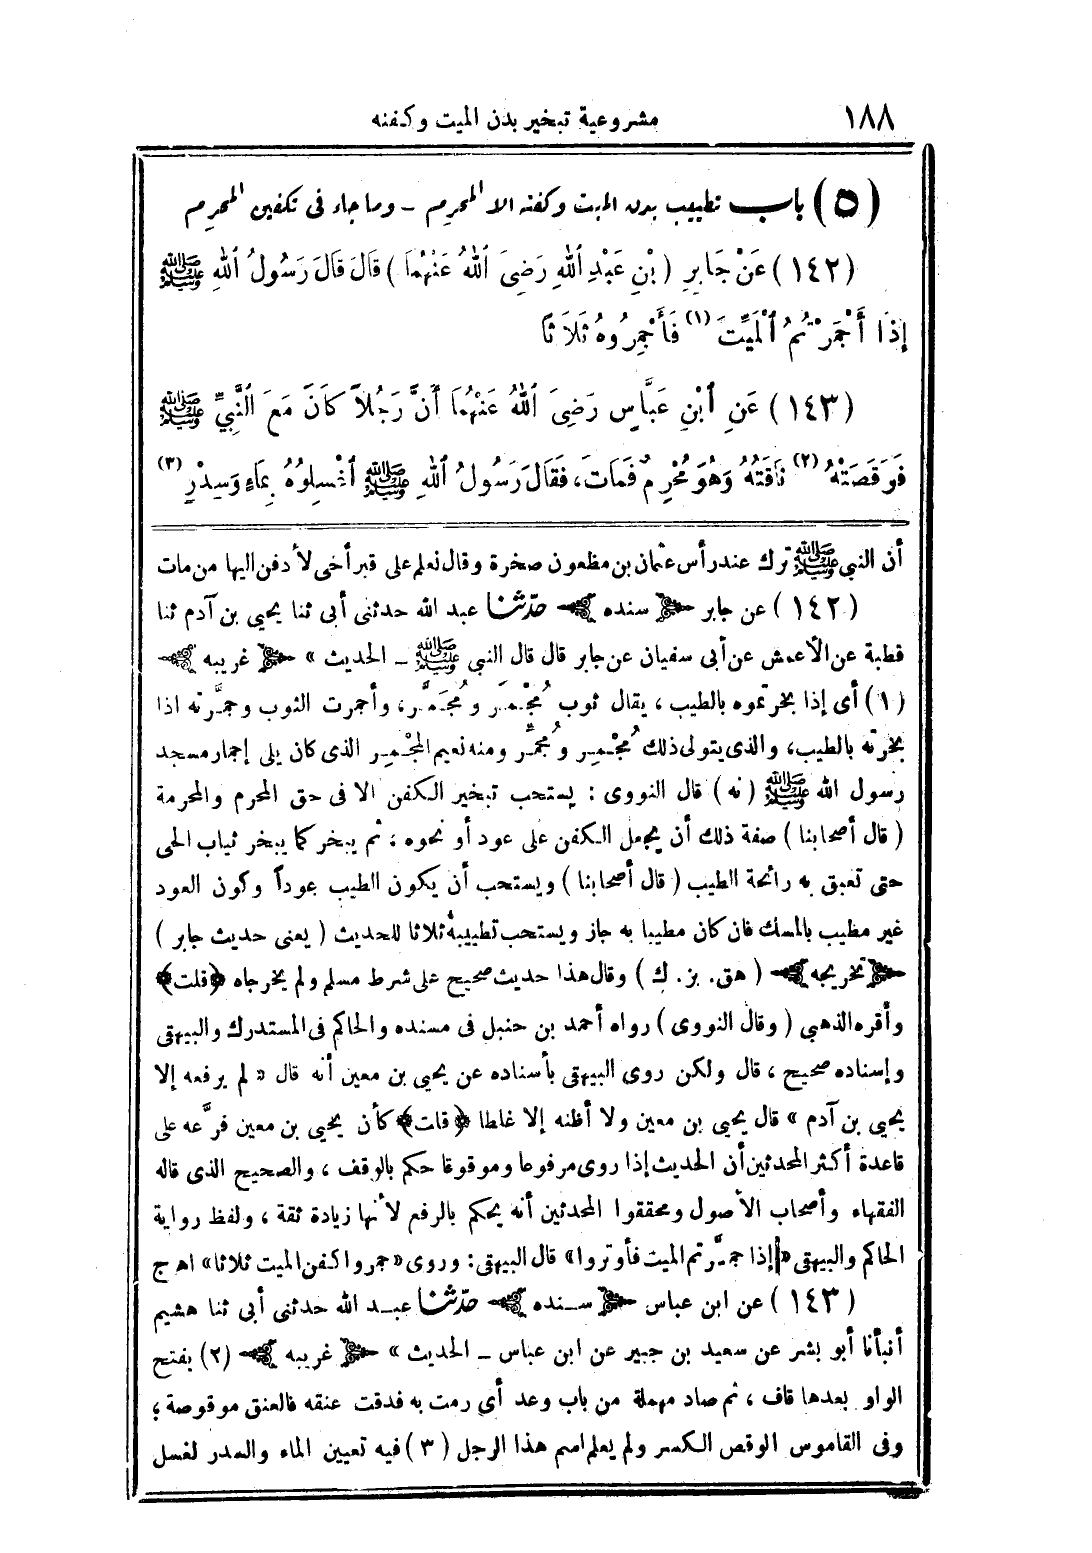 ١٨٨ مشروعية تبخير بدن الميت وكفنه
(٥) باب تطييب بدن الميت وكفنه الا المحرم – وما جاء فى تكفين المحرم
(١٤٢) عَنْ جَابِرِ (بْنِ عَبْدِ ٱللهِ رَضِىَ ٱللهُ عَنْهُمَا) قَالَ قَالَ رَسُولُ ٱللهِ ﷺ
إِذَا أَجْمَرْتُمُ ٱلْمَيِّتَ (١) فَأَجْمِرُوهُ ثَلَاثًا
(١٤٣) عَنِ ٱبْنِ عَبَّاسٍ رَضِىَ ٱللهُ عَنْهُمَا أَنَّ رَجُلاً كَانَ مَعَ ٱلنَّبِىِّ ﷺ
فَوَقَصَتْهُ (٢) نَاقَتُهُ وَهُوَ مُحْرِمٌ فَمَاتَ، فَقَالَ رَسُولُ ٱللهِ ﷺ ٱغْسِلُوهُ بِمَاءٍ وَسِدْرٍ (٣)
أن النبى ﷺ ترك عند رأس عثمان بن مظعون صخرة وقال نعلم على قبر أخى لأدفن اليها من مات
(١٤٢) عن جابر ﴿ سنده ﴾ حدّثنا عبد الله حدثنى أبى ثنا يحيى بن آدم ثنا
قطبة عن الأعمش عن أبى سفيان عن جابر قال قال النبى ﷺ – الحديث » ﴿ غريبه ﴾
(١) أى إذا بخرتموه بالطيب، يقال ثوب مُجْمَر ومُجَمَّر، وأجمرت الثوب وجمَّرته اذا
بخرته بالطيب، والذى يتولى ذلك مُجْمِر ومُجَمِّر ومنه نعيم المجْمِر الذى كان يلى إجمار مسجد
رسول الله ﷺ (نه) قال النووى : يستحب تبخير الكفن الا فى حق المحرم والمحرمة
(قال أصحابنا) صفة ذلك أن يجعل الكفن على عود أو نحوه، ثم يبخر كما يبخر ثياب الحى
حتى تعبق به رائحة الطيب (قال أصحابنا) ويستحب أن يكون الطيب عوداً وكون العود
غير مطيب بالمسك فان كان مطيبا به جاز ويستحب تطييبه ثلاثا للحديث (يعنى حديث جابر)
﴿ تخريجه ﴾ (هق. بز. ك) وقال هذا حديث صحيح على شرط مسلم ولم يخرجاه ﴿قلت﴾
وأقره الذهبى (وقال النووى) رواه أحمد بن حنبل فى مسنده والحاكم فى المستدرك والبيهقى
وإسناده صحيح، قال ولكن روى البيهقى بأسناده عن يحيى بن معين أنه قال « لم يرفعه إلا
يحيى بن آدم » قال يحيى بن معين ولا أظنه إلا غلطا ﴿قلت﴾ كأن يحيى بن معين فرَّعه على
قاعدة أكثر المحدثين أن الحديث إذا روى مرفوعا وموقوفا حكم بالوقف، والصحيح الذى قاله
الفقهاء وأصحاب الأصول ومحققوا المحدثين أنه يحكم بالرفع لأنها زيادة ثقة، ولفظ رواية
الحاكم والبيهقى «إذا جمَّرتم الميت فأوتروا» قال البيهقى: وروى «جمروا كفن الميت ثلاثا» اهـ ج
(١٤٣) عن ابن عباس ﴿ سنده ﴾ حدّثنا عبد الله حدثنى أبى ثنا هشيم
أنبأنا أبو بشر عن سعيد بن جبير عن ابن عباس – الحديث » ﴿ غريبه ﴾ (٢) بفتح
الواو بعدها قاف، ثم صاد مهملة من باب وعد أى رمت به فدقت عنقه فالعنق موقوصة؛
وفى القاموس الوقص الكسر ولم يعلم اسم هذا الرجل (٣) فيه تعيين الماء والسدر لغسل